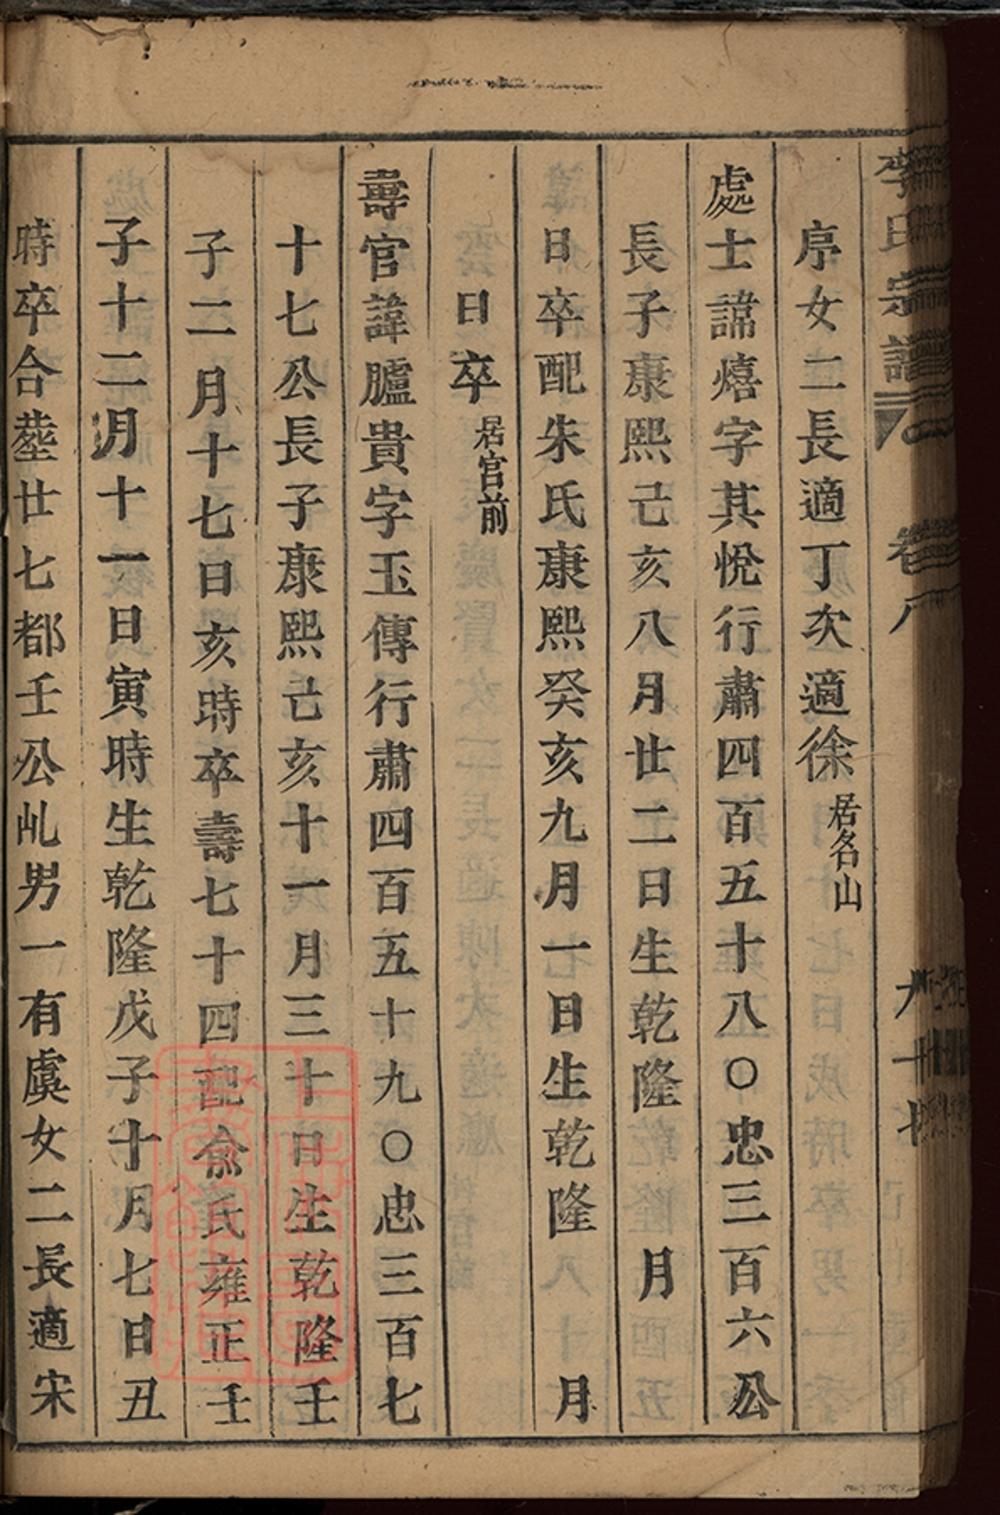 李氏宗譜 卷八
序女二長適丁次適徐居名山
處士諱熺字其悅行肅四百五十八○忠三百六公
長子康熙己亥八月廿二日生乾隆 月
日卒配朱氏康熙癸亥九月一日生乾隆 月
日卒居官前
壽官諱臚貴字玉傳行肅四百五十九○忠三百七
十七公長子康熙己亥十一月三十日生乾隆壬
子二月十七日亥時卒壽七十四配俞氏雍正壬
子十二月十一日寅時生乾隆戊子十月七日丑
時卒合塟廿七都壬公乢男一有虞女二長適宋